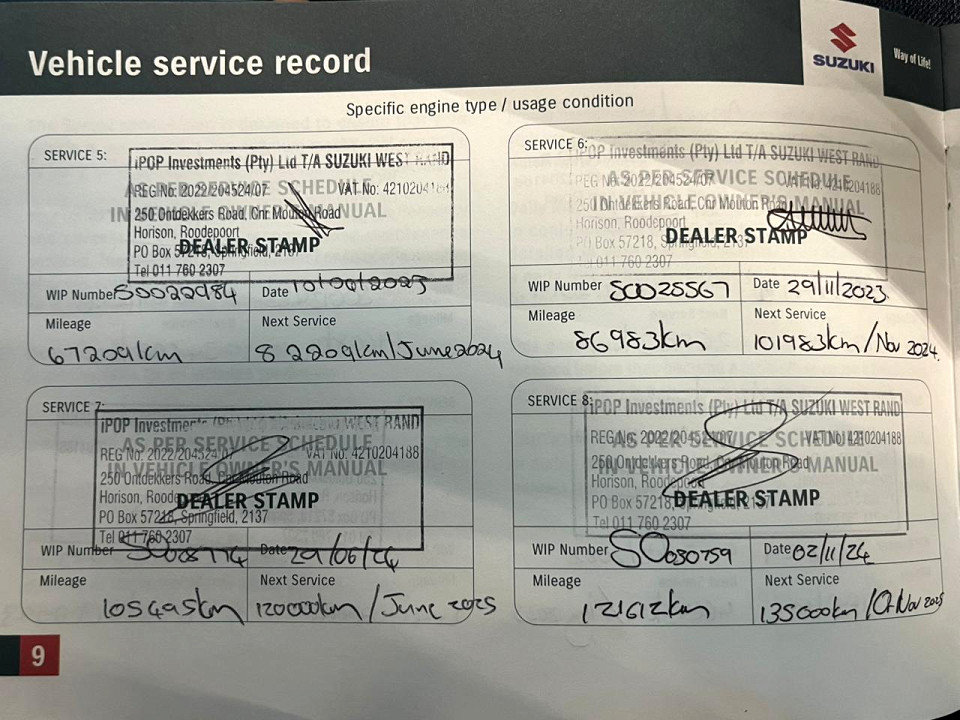 Vehicle service record
SUZUKI
Way of Life!
Specific engine type / usage condition
SERVICE 5:
iPOP Investments (Pty) Ltd T/A SUZUKI WEST RAND
AS PER SERVICE SCHEDULE
REG No. 2022/204524/07 VAT No: 4210204188
IN VEHICLE OWNER'S MANUAL
250 Ontdekkers Road, Cnr Mouton Road
Horison, Roodepoort
DEALER STAMP
PO Box 57218, Springfield, 2137
Tel 011 760 2307
WIP Number SO022984 Date 10/06/2023
Mileage Next Service
67209km 82209km/June 2024
SERVICE 6:
iPOP Investments (Pty) Ltd T/A SUZUKI WEST RAND
AS PER SERVICE SCHEDULE
REG No. 2022/204524/07 VAT No: 4210204188
IN VEHICLE OWNER'S MANUAL
250 Ontdekkers Road, Cnr Mouton Road
Horison, Roodepoort
DEALER STAMP
PO Box 57218, Springfield, 2137
Tel 011 760 2307
WIP Number SO025567 Date 29/11/2023
Mileage Next Service
86983km 101983km/Nov 2024.
SERVICE 7:
iPOP Investments WEST RAND
AS PER SERVICE SCHEDULE
REG No. 2022/204524/07 VAT No: 4210204188
IN VEHICLE OWNER'S MANUAL
250 Ontdekkers Road, Cnr Mouton Road
Horison, Roodepoort
DEALER STAMP
PO Box 57218, Springfield, 2137
Tel 011 760 2307
WIP Number SO028774 Date 29/06/24
Mileage Next Service
105495km 120000km/June 2025
SERVICE 8:
iPOP Investments (Pty) Ltd T/A SUZUKI WEST RAND
REG No. 2022/204524/07 VAT No: 4210204188
AS PER SERVICE SCHEDULE
250 Ontdekkers Road, Cnr Mouton Road
IN VEHICLE OWNER'S MANUAL
Horison, Roodepoort
DEALER STAMP
PO Box 57218, Springfield, 2137
Tel 011 760 2307
WIP Number SO030759 Date 02/11/24
Mileage Next Service
121612km 135000km/ Nov 2025
9